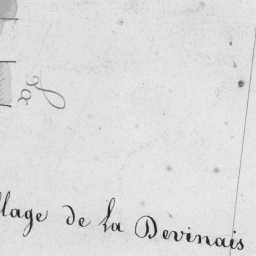 llage de la Devinais